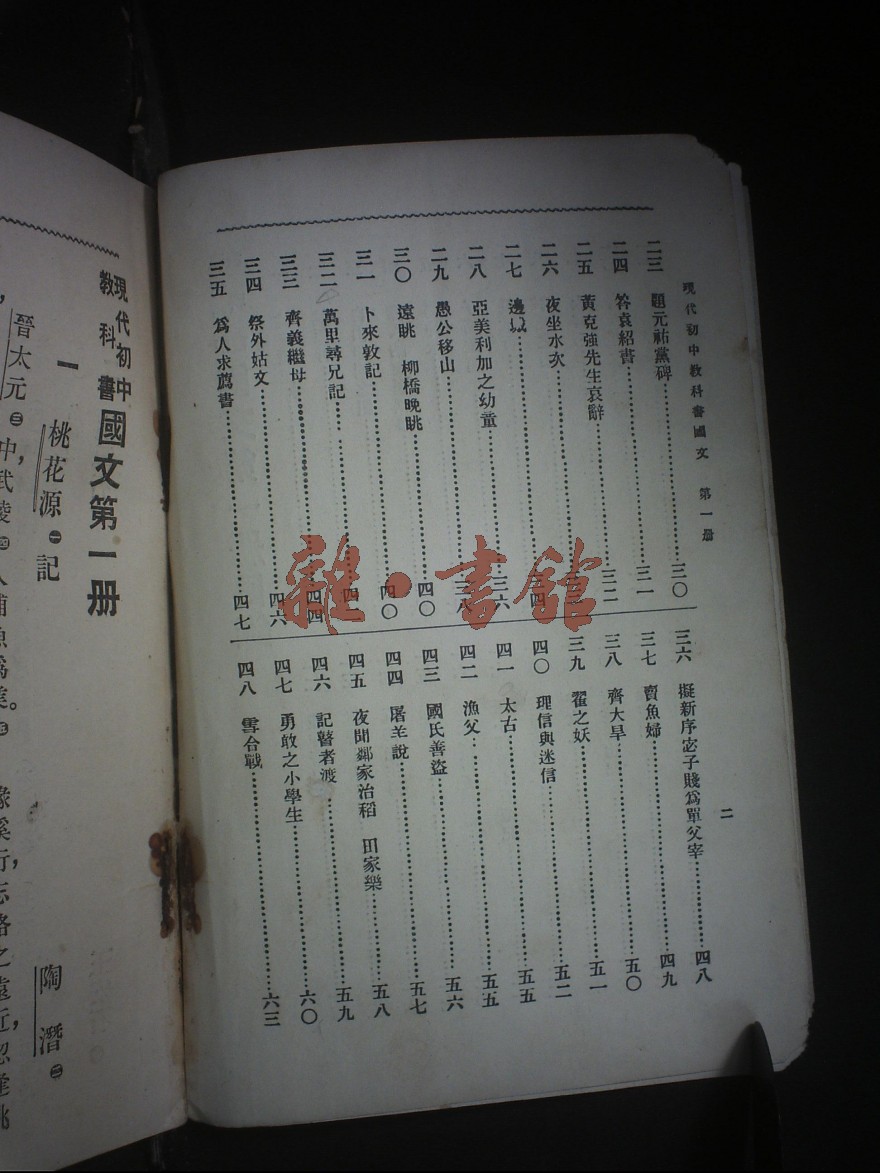 現代初中教科書國文 第一册
二
二三 題元祐黨碑 三〇
二四 答袁紹書 三一
二五 黃克強先生哀辭 三二
二六 夜坐水次
二七 邊 三四
二八 亞美利加之幼童 三六
二九 愚公移山 三八
三〇 遠眺 柳橋晚眺 四〇
三一 卜來敦記 四〇
三二 萬里尋兄記
三三 齊義繼母 四四
三四 祭外姑文 四六
三五 爲人求薦書 四七
三六 擬新序宓子賤爲單父宰 四八
三七 賣魚婦 四九
三八 齊大旱 五〇
三九 翟之妖 五一
四〇 理信與迷信 五二
四一 太古 五五
四二 漁父 五五
四三 國氏善盜 五六
四四 屠羊說 五七
四五 夜聞鄰家治稻 田家樂 五八
四六 記瞽者渡 五九
四七 勇敢之小學生 六〇
四八 雪合戰 六三
現代初中
教科書
國文第一册
一 桃花源㊀記
陶潛㊁
晉太元㊂中,武陵㊃人捕魚爲業。㊄
緣溪行,忘路之遠近,忽逢桃
雜·書館